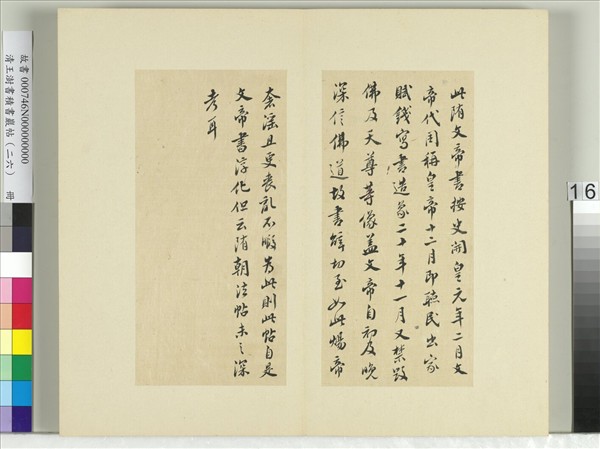 此隋文帝書按史開皇元年二月文
帝代周稱皇帝十二月即聽民出家
賦錢寫書造象二十年十一月又禁毀
佛及天尊等像蓋文帝自初及晚
深信佛道故書辭切至如此煬帝
奢淫且更喪亂不暇為此則此帖自是
文帝書淳化但云隋朝法帖未之深
考耳
故書 000746N000000000
清王澍書積書巖帖(二六) 冊
16